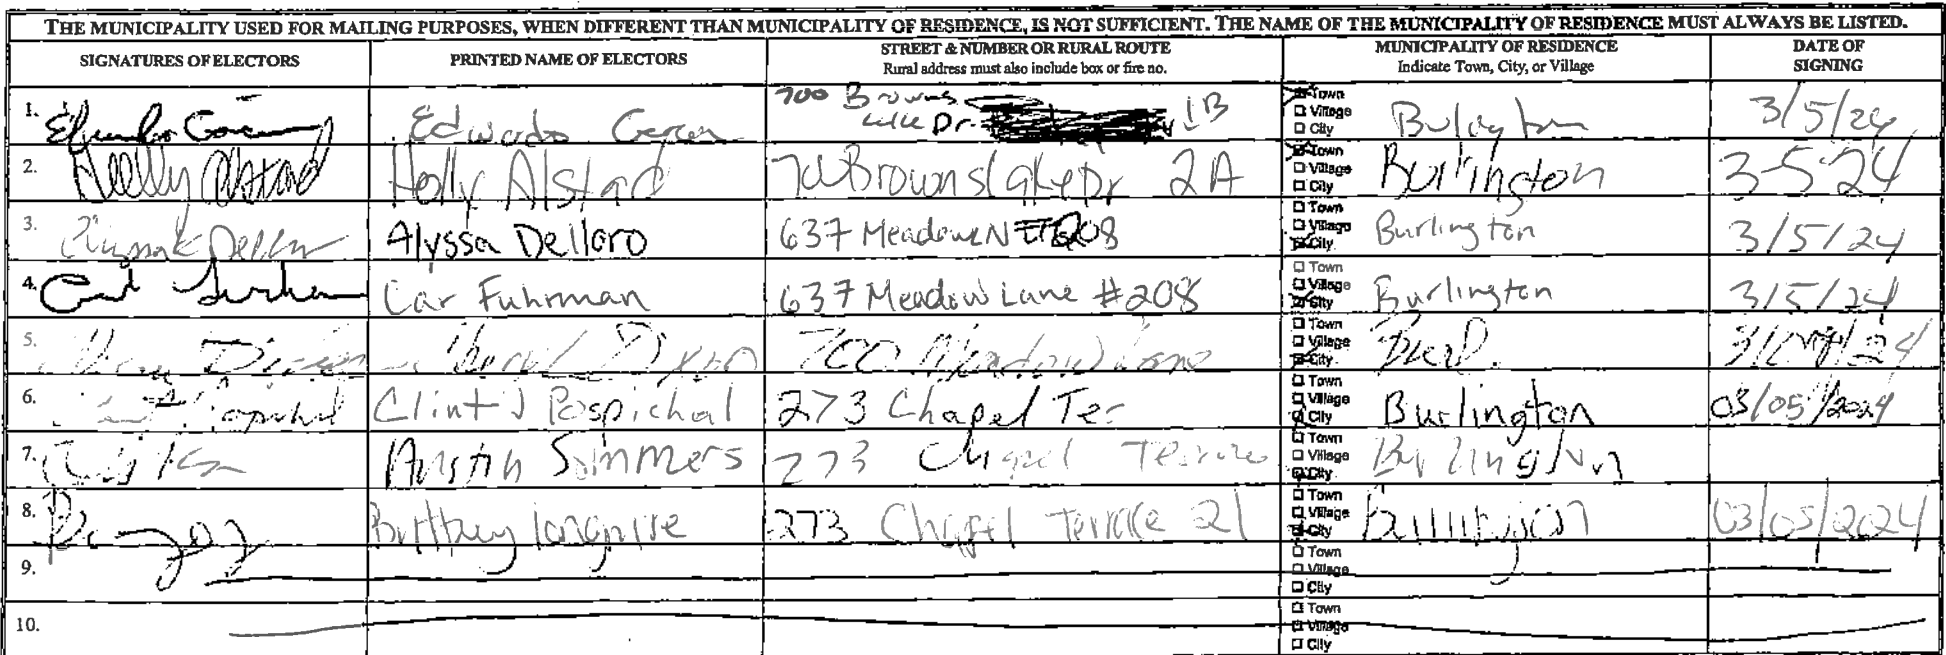 THE MUNICIPALITY USED FOR MAILING PURPOSES, WHEN DIFFERENT THAN MUNICIPALITY OF RESIDENCE, IS NOT SUFFICIENT. THE NAME OF THE MUNICIPALITY OF RESIDENCE MUST ALWAYS BE LISTED.
SIGNATURES OF ELECTORS PRINTED NAME OF ELECTORS STREET & NUMBER OR RURAL ROUTE MUNICIPALITY OF RESIDENCE DATE OF SIGNING
Rural address must also include box or fire no. Indicate Town, City, or Village
1. Edwardo 700 Browns Lake Dr. 1B Town Village City 3/5/24
2. Holly Alstad Holly Alstad 700 Browns Lake Dr 2A Town Village City Burlington 3-5-24
3. Alyssa Delloro 637 Meadow LN 208 Town Village City Burlington 3/5/24
4. Car Fuhrman 637 Meadow Lane #208 Town Village City Burlington 3/5/24
5. 700 Meadow Lane Town Village City Burl.
6. Clint J Pospichal 273 Chapel Ter Town Village City Burlington 03/05/2024
7. Austin Simmers 273 Chapel Terrace Town Village City Burlington
8. 273 Chapel Terrace 21 Town Village City Burlington 03/05/2024
9. Town Village City
10. Town Village City